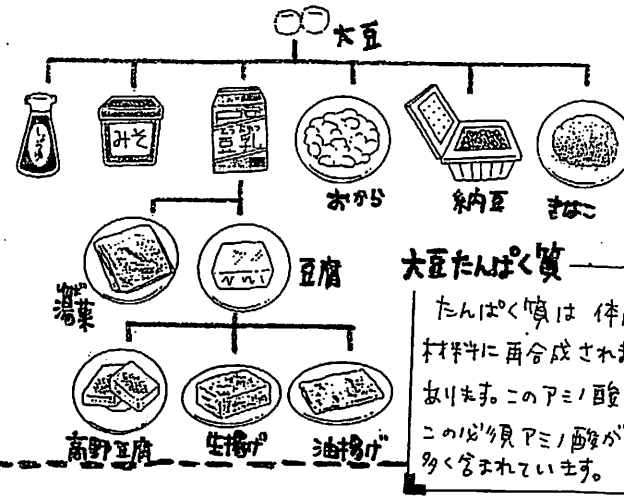 大豆
しょうゆ
みそ
豆乳
おから
納豆
きなこ
ゆば
湯葉
豆腐
高野豆腐
生揚げ
油揚げ
大豆たんぱく質
たんぱく質は 体
材料に再合成されま
あります。このアミノ酸
この必須アミノ酸が
多く含まれています。